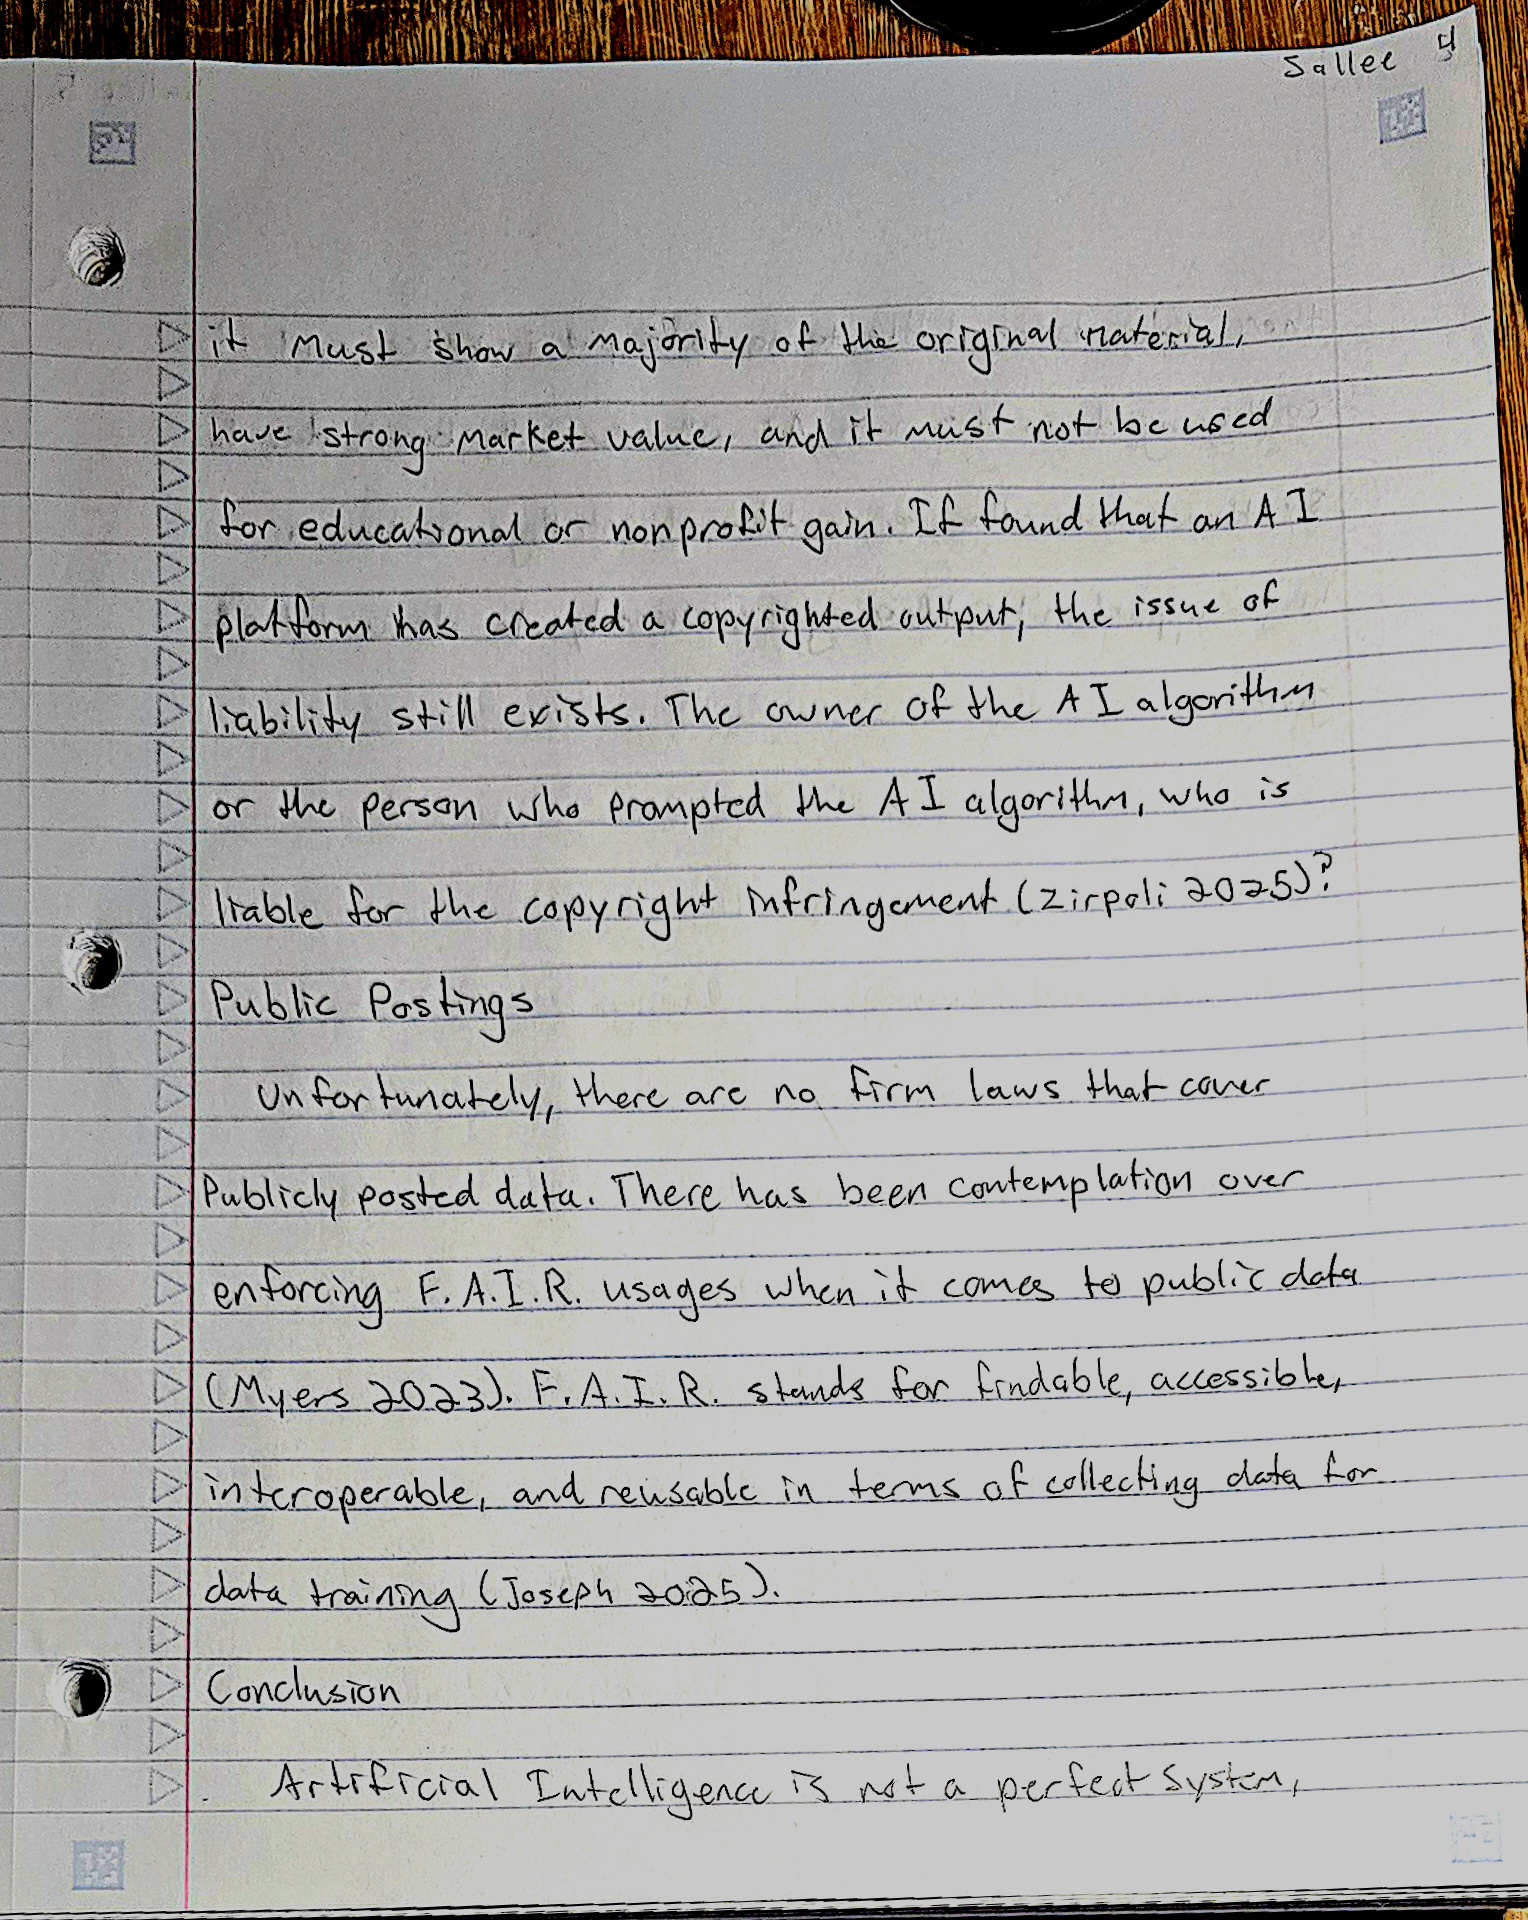 Sallee 4
it must show a majority of the original material,
have strong market value, and it must not be used
for educational or nonprofit gain. If found that an AI
platform has created a copyrighted output, the issue of
liability still exists. The owner of the AI algorithm
or the person who prompted the AI algorithm, who is
liable for the copyright infringement (Zirpoli 2025)?
Public Postings
Unfortunately, there are no firm laws that cover
Publicly posted data. There has been contemplation over
enforcing F.A.I.R. usages when it comes to public data
(Myers 2023). F.A.I.R. stands for findable, accessible,
interoperable, and reusable in terms of collecting data for
data training (Joseph 2025).
Conclusion
Artificial Intelligence is not a perfect system,